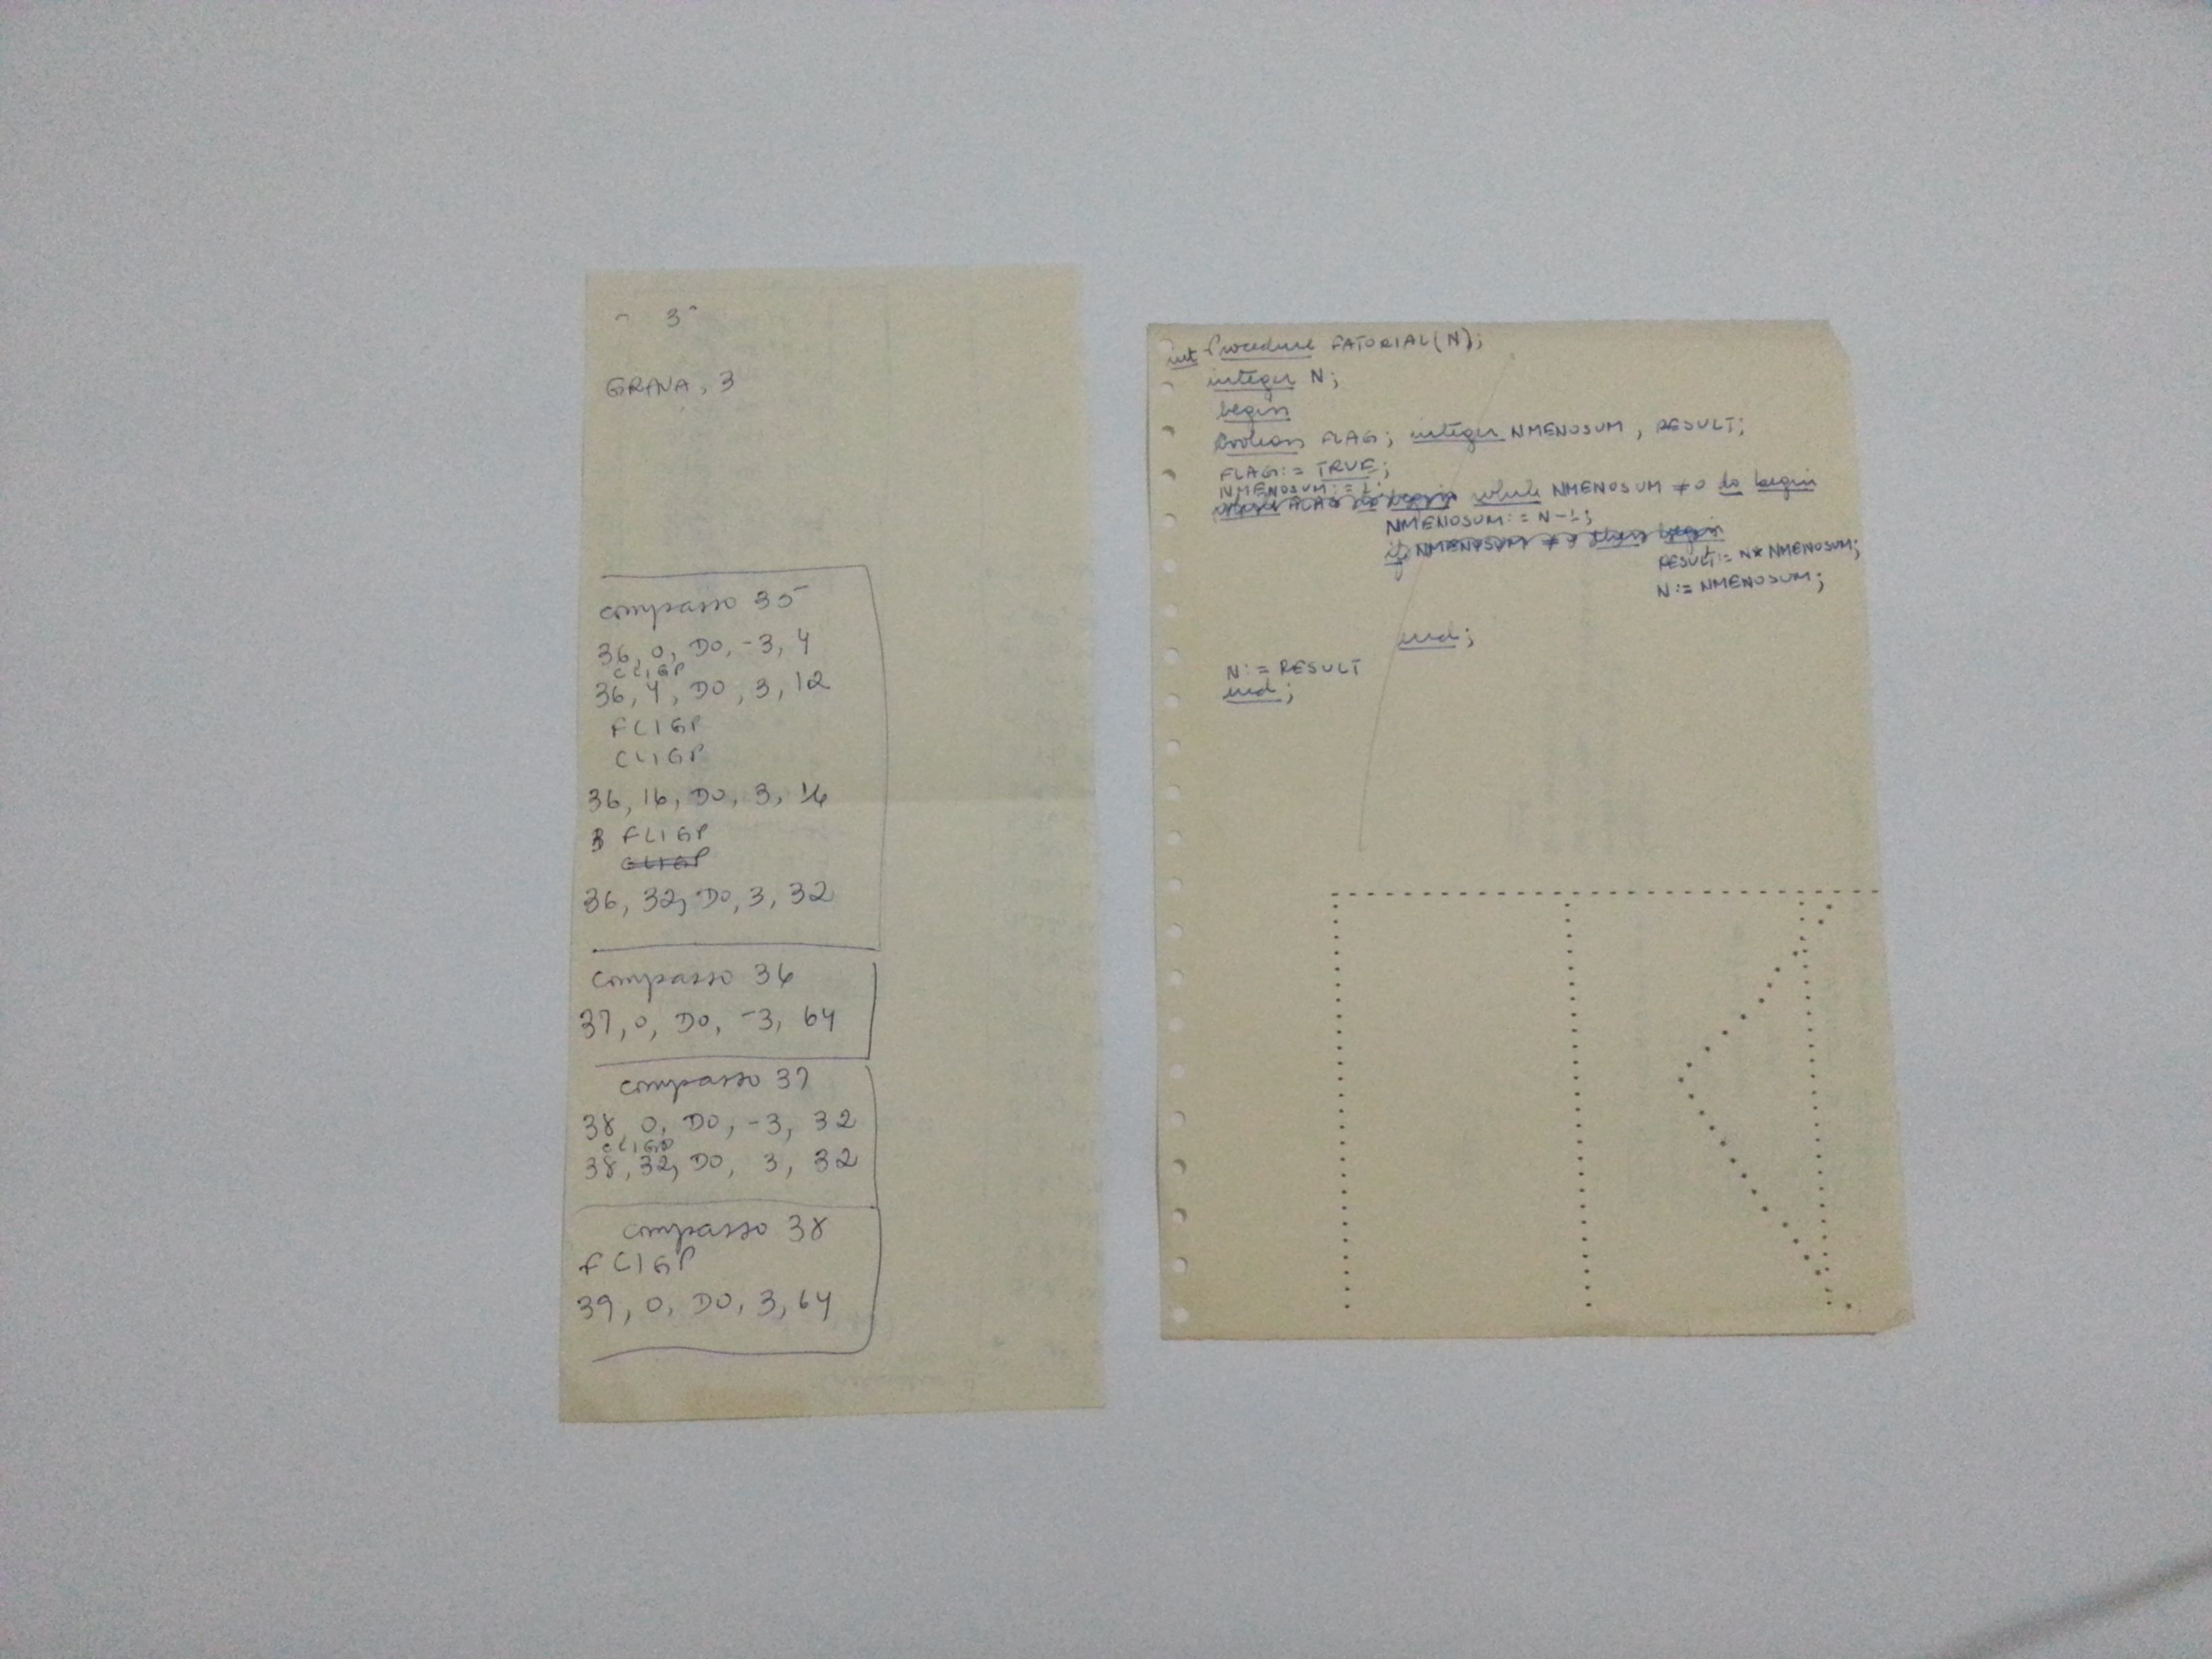 GRANA, 3
compasso 35
36, 0, DO, -3, 4
CLIGP
36, 4, DO, 3, 12
FLIGP
CLIGP
36, 16, DO, 3, 16
FLIGP
CLIGP
36, 32, DO, 3, 32
compasso 36
37, 0, DO, -3, 64
compasso 37
38, 0, DO, -3, 32
CLIGP
38, 32, DO, 3, 32
compasso 38
FLIGP
39, 0, DO, 3, 64
int Procedure FATORIAL(N);
integer N;
begin
boolean FLAG; integer NMENOSUM, RESULT;
FLAG:= TRUE;
NMENOSUM:= 1;
while FLAG do begin while NMENOSUM ≠ 0 do begin
NMENOSUM:= N-1;
if NMENOSUM ≠ then begin
RESULT:= N*NMENOSUM;
N:= NMENOSUM;
end;
N:= RESULT
end;